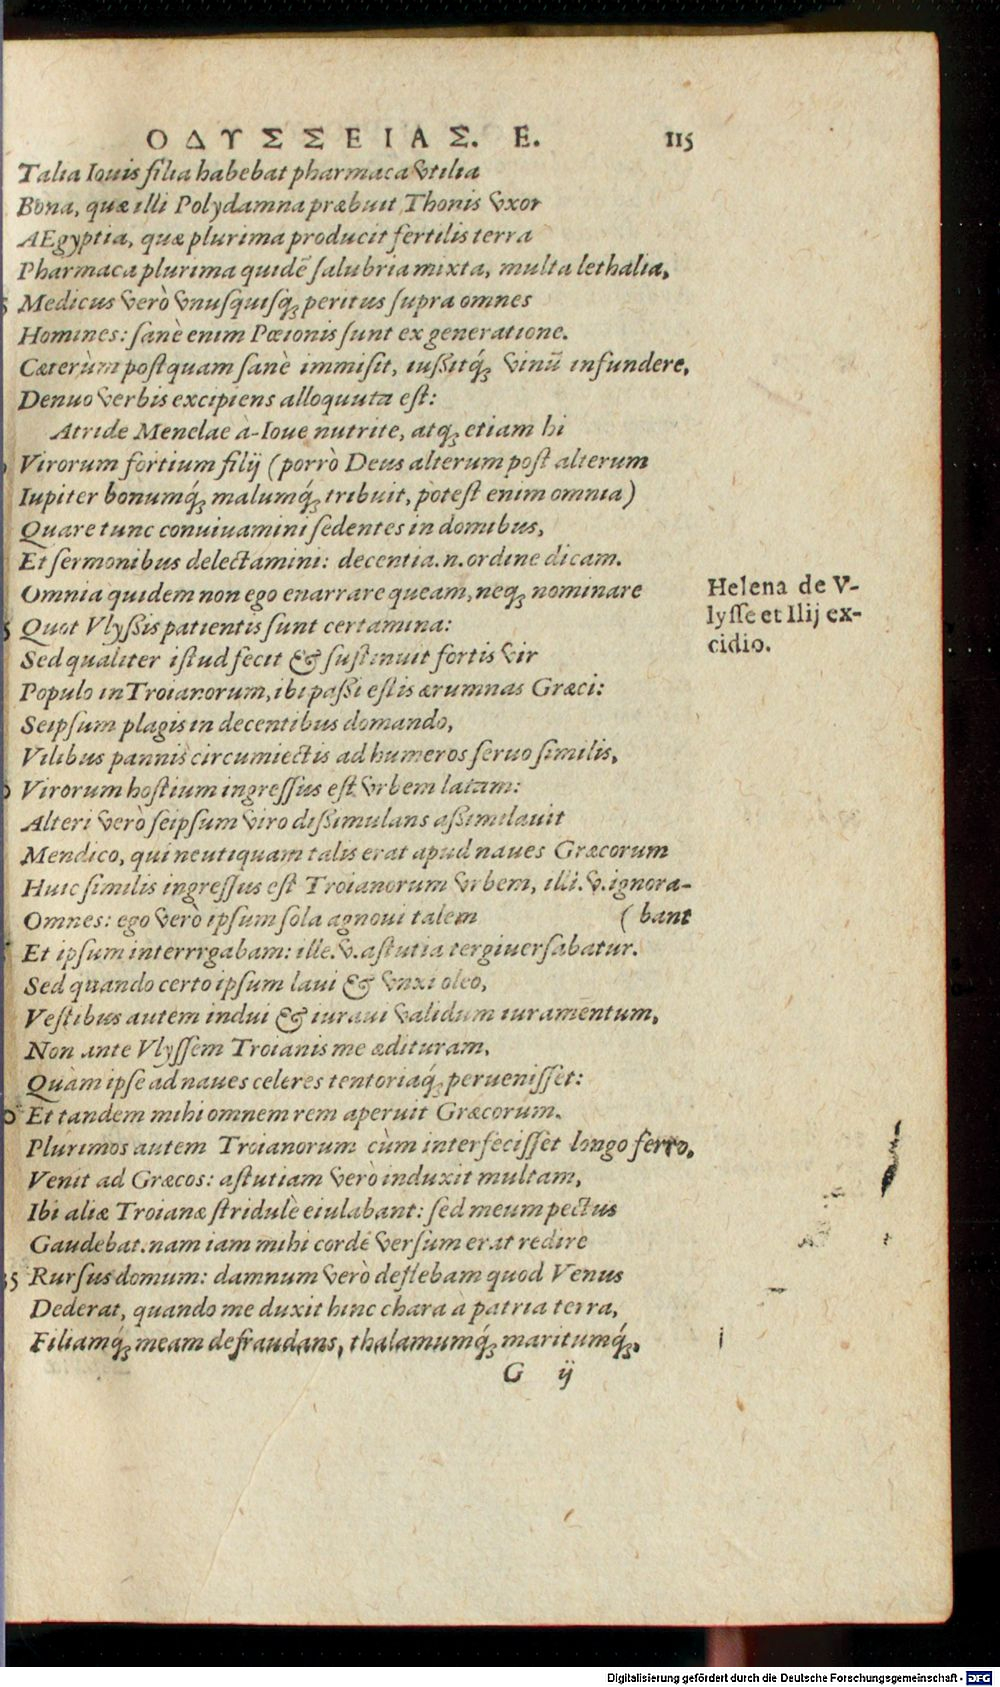 ΟΔΥΣΣΕΙΑΣ. Ε. 115
Talia Iouis filia habebat pharmaca vtilia
Bona, quæ illi Polydamna præbuit Thonis vxor
AEgyptia, quæ plurima producit fertilis terra
Pharmaca plurima quidẽ salubria mixta, multa lethalia,
5 Medicus verò vnusquisq; peritus supra omnes
Homines: sanè enim Pœionis sunt ex generatione.
Cæterùm postquam sanè immisit, iußitq́; vinũ infundere,
Denuo verbis excipiens alloquuta est:
Atride Menelae à-Ioue nutrite, atq; etiam hi
Virorum fortium filij (porrò Deus alterum post alterum
Iupiter bonumq́; malumq́; tribuit, potest enim omnia)
Quare tunc conuiuamini sedentes in domibus,
Et sermonibus delectamini: decentia .n. ordine dicam.
Omnia quidem non ego enarrare queam, neq; nominare
5 Quot Vlyßis patientis sunt certamina:
Sed qualiter istud fecit & sustinuit fortis vir
Populo in Troianorum, ibi paßi estis ærumnas Græci:
Seipsum plagis in decentibus domando,
Vilibus pannis circumiectis ad humeros seruo similis,
Virorum hostium ingressus est vrbem latam:
Alteri verò seipsum viro dißimulans aßimilauit
Mendico, qui neutiquam talis erat apud naues Græcorum
Huic similis ingressus est Troianorum vrbem, illi .v. ignora-
Omnes: ego verò ipsum sola agnoui talem (bant
Et ipsum interrrgabam: ille .v. astutia tergiuersabatur.
Sed quando certo ipsum laui & vnxi oleo,
Vestibus autem indui & iuraui validum iuramẽntum,
Non ante Vlyssem Troianis me ædituram,
Quàm ipse ad naues celeres tentoriaq́; peruenisset:
0 Et tandem mihi omnem rem aperuit Græcorum.
Plurimos autem Troianorum cùm interfecisset longo ferro,
Venit ad Græcos: astutiam verò induxit multam,
Ibi aliæ Troianæ stridulè eiulabant: sed meum pectus
Gaudebat. nam iam mihi cordé versum erat redire
35 Rursus domum: damnum verò deflebam quod Venus
Dederat, quando me duxit hinc chara à patria terra,
Filiamq́; meam defraudans, thalamumq́; maritumq́;,
G ij
Helena de V-
lysse et Ilij ex-
cidio.
Digitalisierung gefördert durch die Deutsche Forschungsgemeinschaft - DFG